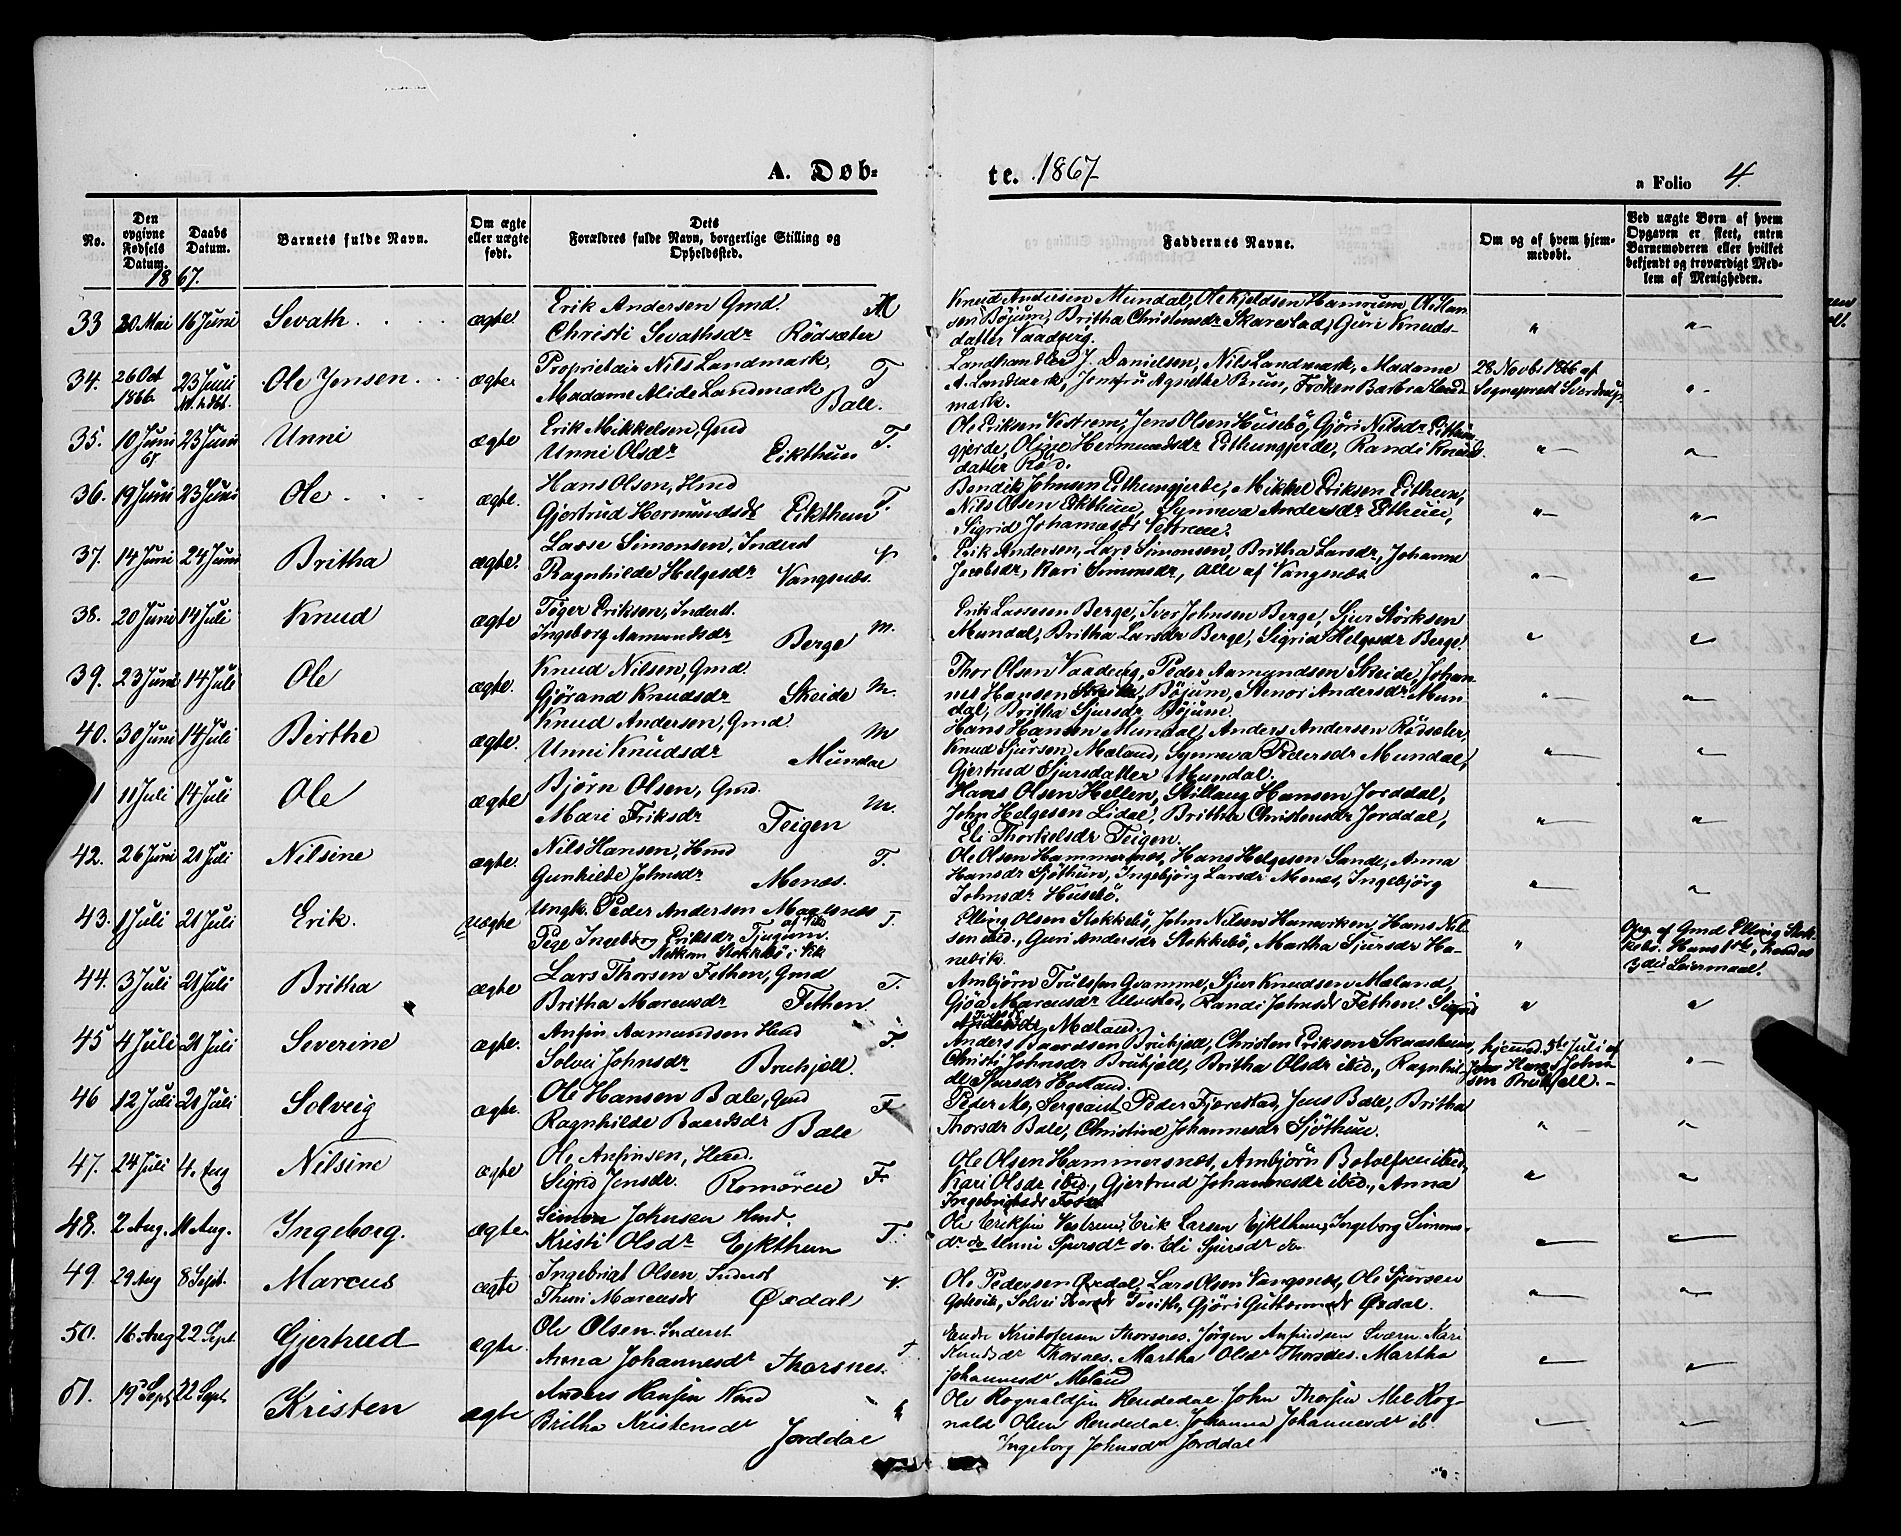 A. Døb-
te. 1867
a Folio 4.
No.
Den opgivne Fødsels Datum.
Daabs Datum.
Barnets fulde Navn.
Om ægte eller uægte født.
Dets Forældres fulde Navn, borgerlige Stilling og Opholdssted.
Faddernes Navne.
Om og af hvem hjemmedøbt.
Ved uægte Børn af hvem Opgaven er skeet, enten Barnemoderen eller hvilket bekjendt og troværdigt Medlem af Menigheden.
1867.
33 20 Mai 16 Juni Sevath ægte Erik Andersen Gmd. M
Christi Sevathsdr Rödsæter
Knud Andersen Mundal, Ole Kjeldsen Hamrum, Ole Han-
sen Böjum, Britha Christensdr Skarestad, Guri Knuds-
datter Vaadberg.
34. 26 Oct 1866 23 Juni Ole Jensen ægte Proprietair Nils Landmark, T
Madame Alide Landmark Bale.
Landhandler J. Danielsen, Nils Landmark, Madame
A. Landmark, Jomfru Agnethe Brun, Fröken Barbra Land-
mark.
28 Novbr 1866 af
Sogneprest Sverdrup
35. 10 Juni 67 23 Juni Unni ægte Erik Mikkelsen, Gmd T.
Unni Olsdr Eikthun
Ole Eriksen Vestrem, Jens Olsen Husebö, Gjöri Nilsdr Eithun-
gjerde, Oline Hermundsdr Eithungjerde, Randi Knuds-
datter Röd.
36. 19 Juni 23 Juni Ole ægte. Hans Olsen, Hmd T.
Gjertrud Hermundsdr Eikthun
Bendik Johnsen Eithungjerde, Mikkel Eriksen Eithun,
Nils Olsen Eikthun, Synneva Andersdr Eithun,
Sigrid Johannesdr Vestrem.
37. 14 Juni 24 Juni Britha ægte. Lasse Simonsen, Inderst V
Ragnhilde Helgesdr Vangsnæs.
Erik Andersen, Lars Simonsen, Britha Larsdr, Johanne
Jacobsdr, Kari Simonsdr, Alle af Vangsnæs
38. 20 Juni 14 Juli Knud ægte Töger Eriksen, Inderst. M.
Ingeborg Aamundsdr Berge
Erik Lassesen Berge, Iver Johnsen Berge, Sjur Störksen
Mundal, Britha Larsdr Berge, Sigrid Helgesdr Berge.
39. 23 Juni 14 Juli Ole ægte. Knud Nilsen, Gmd. M.
Gjörand Knudsdr Skeide
Thor Olsen Vaadberg, Peder Aamundsen Skeide, Johan-
nes Hansen Böjum, Stenor Andersdr Mun-
dal, Britha Sjursdr Böjum.
40. 30 Juni 14 Juli Birthe ægte. Knud Andersen, Gmd M
Unni Knudsdr Mundal
Hans Hansen Mundal, Anders Andersen Rödsæter
Knud Sjursen Mæland, Synneva Pedersdr Mundal,
Gjertrud Sjursdatter Mundal.
1 11 Juli 14 Juli Ole ægte Björn Olsen, Gmd. M.
Mari Eriksdr Teigen
Hans Olsen Hellen, Stillaug Hansen Jorddal,
John Helgesen Lidal, Britha Christensdr Jorddal,
Eli Thorkelsdr Teigen.
42. 26 Juni 21 Juli Nilsine ægte. Nils Hansen, Hmd T.
Gunhilde Johnsdr Menæs.
Ole Olsen Hammersnæs, Hans Helgesen Sande, Anna
Hansdr Sjöthun, Ingebjörg Larsdr Menæs, Ingebjörg
Johnsdr Husebö.
43. 1 Juli 21 Juli Erik. uægte Ungk. Peder Andersen T.
Pige Ingeborg Eriksdr Tjugum.
Stokkebö i Vik
Elling Olsen Stokkebö, John Nilsen Hamviken, Hans Nil-
sen ibid., Guri Andersdr Stokkebö, Martha Sjursdr Ha-
mevik.
Opg. af Gmd Elling Stok-
kebö. Hans 1ste, hendes
3die Leiermaal.
44. 3 Juli 21 Juli Britha ægte Lars Thorsen Fethen, Gmd T.
Britha Marcusdr Fethen.
Ambjörn Trulssen Qvamme, Sjur Knudsen Mæland,
Gjöa Marcusdr Ulvestad, Randi Johnsdr Fethen. Sigrid
Andersdr Mæland.
45 4 Juli 21 Juli Severine ægte. Anfin Aamundsen Hmd F.
Solvei Johnsdr Bruhjell
Anders Baardsen Bruhjell, Christen Eriksen Skaasheim,
Christi Johnsdr Bruhjell, Britha Olsdr ibid., Ragnhil-
de Sjursdr Hovland.
hjemmed. 5te Juli af
Hans John-
sen Bruhjell.
46 12 Juli 21 Juli Solveig ægte. Ole Hansen Bale, Gmd F
Ragnhilde Baardsdr Bale
Peder Mo, Sergeant Peder Fjærestad, Jens Bale, Britha
Thorsdr Bale, Christine Johannesdr Sjöthun.
47. 24 Juli 4. Aug Nilsine ægte Ole Anfinsen, Hmd. F.
Sigrid Jensdr. Romören
Ole Olsen Hammersnæs, Ambjörn Botolfsen ibid.,
Kari Olsdr ibid., Gjertrud Johannesdr ibid., Anna
Ingebrigtsdr
48. 2 Aug. 11 Aug. Ingeborg. ægte Simon Johnsen Hmd. T.
Kristi Olsdr Ejkthun
Ole Eriksen Vestrem, Erik Larsen Ejkthun, Ingeborg Simons-
dr do Unni Sjursdr do. Eli Sjursdr do
49. 29 Aug 8 Sept. Marcus ægte Ingebrigt Olsen Inderst V.
Thuri Marcusdr Öxdal
Ole Pedersen Öxdal, Lars Olsen Vangsnes, Ole Sjursen
Solvei Tveith, Gjöri Guttormsdr Öxdal.
50. 16 Aug 22 Sept Gjertrud ægte Ole Olsen Inderst T
Anna Johannesdr Thorsnes.
Endre Kristofersen Thorsnes. Jörgen Anfindsen Sværn. Kari
Knudsdr Thorsnes. Martha Olsdr Thorsnes. Martha
Johannesdr Meland
51. 19 Sept 22 Sept Kristen ægte Anders Hansen Hmd
Britha Kristensdr Jorddal
Ole Rognaldsen Rendedal John Thorsen Mel Rog-
nald Olsen Rendedal. Johanna Johannesdr ib.
Ingeborg Johnsdr Jorddal